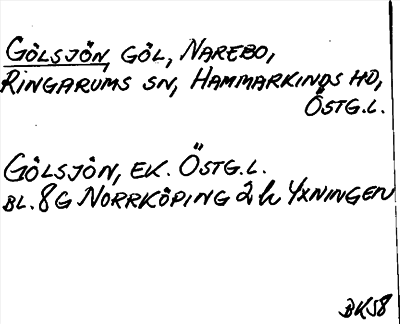 GÖLSJÖN, GÖL, NAREBO,
RINGARUMS SN, HAMMARKINDS HD,
ÖSTG.L.
GÖLSJÖN, EK. ÖSTG.L.
BL. 8G NORRKÖPING 2h YXNINGEN
BK58